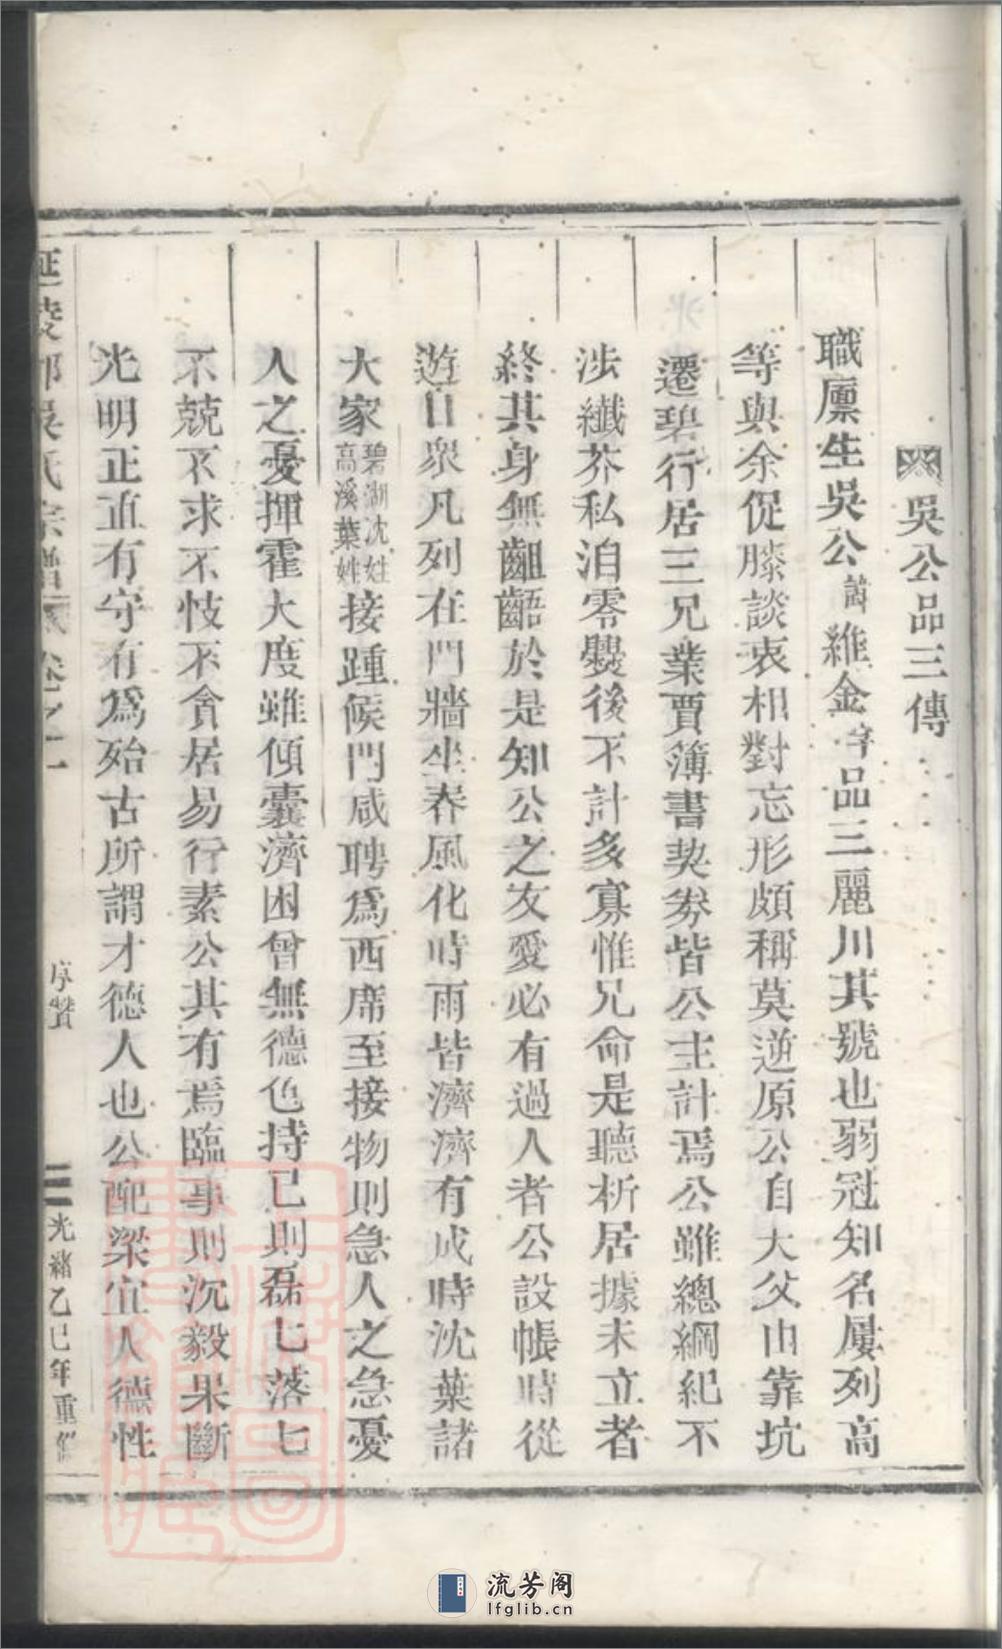 吳公品三傳
職廪生吳公諱維金字品三麗川其號也弱冠知名屢列高
等與余促膝談衷相對忘形頗稱莫逆原公自大父由靠坑
遷碧行居三兄業賈簿書契劵皆公主計焉公雖總綱紀不
涉纖芥私洎零爨後不計多寡惟兄命是聽析居據未立者
終其身無齟齬於是知公之友愛必有過人者公設帳時從
遊日衆凡列在門牆坐春風化時雨皆濟濟有成時沈葉諸
大家碧湖沈姓高溪葉姓接踵候門咸聘爲西席至接物則急人之急憂
人之憂揮霍大度雖傾囊濟困曾無德色持已則磊七落七
不兢不求不忮不貪居易行素公其有焉臨事則沉毅果斷
光明正直有守有爲殆古所謂才德人也公配梁宜人德性
延陵郡吳氏宗譜 卷之一 序贊 三 光緒乙巳年重修
流芳阁
lfglib.cn